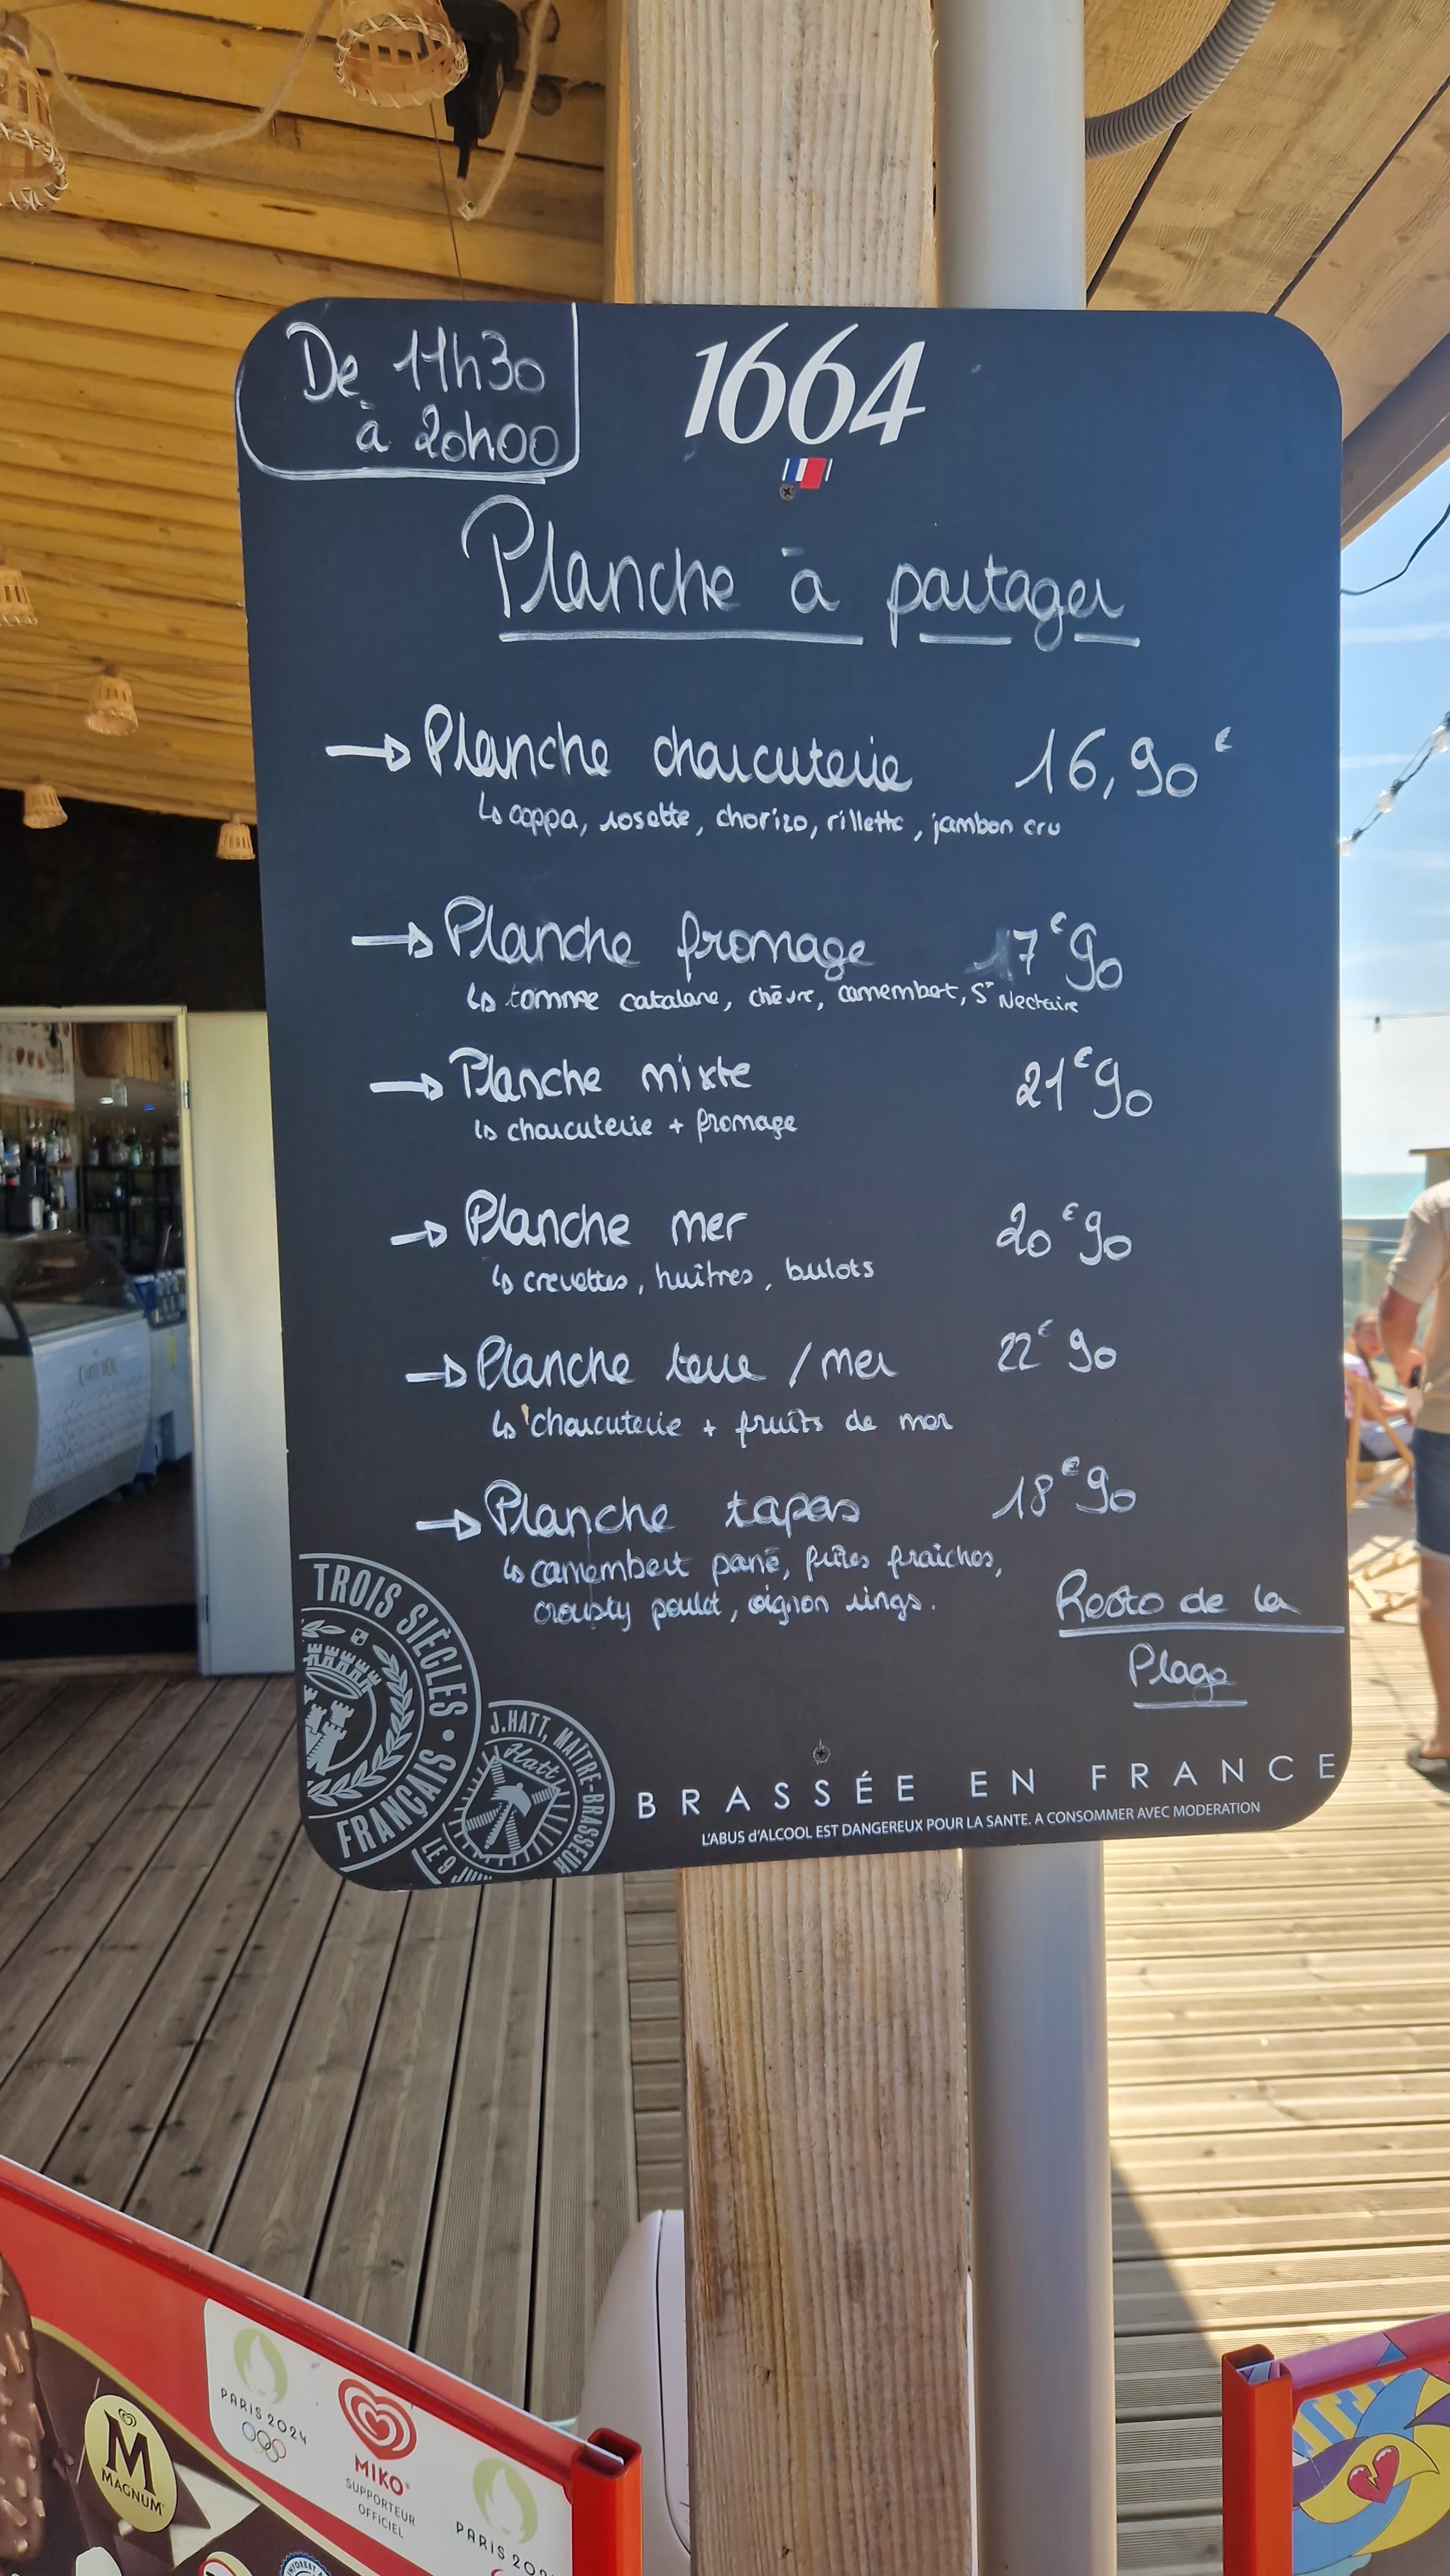 De 11h30
à 20h00
1664
Planche à partager
Planche charcuterie 16,90 €
coppa, rosette, chorizo, rillette, jambon cru
Planche fromage 17€90
tomme catalane, chèvre, camembert, St Nectaire
Planche mixte 21€90
charcuterie + fromage
Planche mer 20€90
crevettes, huîtres, bulots
Planche terre / mer 22€90
charcuterie + fruits de mer
Planche tapas 18€90
camembert pané, frites fraiches,
crousty poulet, oignon rings.
Resto de la
Plage
TROIS SIÈCLES • FRANÇAIS
J.HATT, MAITRE-BRASSEUR
Hatt
LE 9 JUIN
BRASSÉE EN FRANCE
L'ABUS d'ALCOOL EST DANGEREUX POUR LA SANTE. A CONSOMMER AVEC MODERATION
M
MAGNUM
PARIS 2024
MIKO
SUPPORTEUR
OFFICIEL
PARIS 202